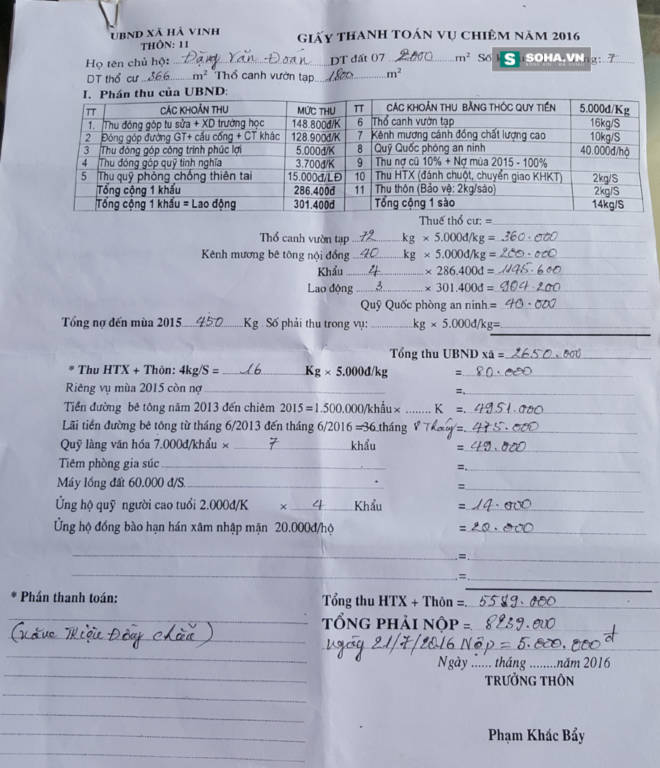 UBND XÃ HÀ VINH
THÔN: 11
GIẤY THANH TOÁN VỤ CHIÊM NĂM 2016
SOHA.VN
Họ tên chủ hộ: Đặng Văn Đoán DT đất 07 2000 m² Số : 7
DT thổ cư 366 m² Thổ canh vườn tạp 1800 m²
I. Phần thu của UBND:
TT CÁC KHOẢN THU MỨC THU TT CÁC KHOẢN THU BẰNG THÓC QUY TIỀN 5.000đ/Kg
1. Thu đóng góp tu sửa + XD trường học 148.800đ/K 6 Thổ canh vườn tạp 16kg/S
2 Đóng góp đường GT+ cầu cống + CT khác 128.900đ/K 7 Kênh mương cánh đồng chất lượng cao 10kg/S
3 Thu đóng góp công trình phúc lợi 5.000đ/K 8 Quỹ Quốc phòng an ninh 40.000đ/hộ
4 Thu đóng góp quỹ tình nghĩa 3.700đ/K 9 Thu nợ cũ 10% + Nợ mùa 2015 - 100%
5 Thu quỹ phòng chống thiên tai 15.000đ/LĐ 10 Thu HTX (đánh chuột, chuyển giao KHKT) 2kg/S
Tổng cộng 1 khẩu 286.400đ 11 Thu thôn (Bảo vệ: 2kg/sào) 2kg/S
Tổng cộng 1 khẩu = Lao động 301.400đ Tổng cộng 1 sào 14kg/S
Thuế thổ cư: =
Thổ canh vườn tạp 72 kg × 5.000đ/kg = 360.000
Kênh mương bê tông nội đồng 40 kg × 5.000đ/kg = 200.000
Khẩu 4 × 286.400đ = 1145.600
Lao động 3 × 301.400đ = 904.200
Quỹ Quốc phòng an ninh = 40.000
Tổng nợ đến mùa 2015 450 Kg Số phải thu trong vụ: kg × 5.000đ/kg=
Tổng thu UBND xã = 2650.000
* Thu HTX + Thôn: 4kg/S = 16 Kg × 5.000đ/kg = 80.000
Riêng vụ mùa 2015 còn nợ =
Tiền đường bê tông năm 2013 đến chiêm 2015 =1.500.000/khẩu× ........ K = 4951.000
Lãi tiền đường bê tông từ tháng 6/2013 đến tháng 6/2016 =36 tháng = 475.000
Quỹ làng văn hóa 7.000đ/khẩu × 7 khẩu = 49.000
Tiêm phòng gia súc =
Máy lồng đất 60.000 đ/S =
Ủng hộ quỹ người cao tuổi 2.000đ/K × 4 Khẩu = 14.000
Ủng hộ đồng bào hạn hán xâm nhập mặn 20.000đ/hộ = 20.000
=
=
* Phần thanh toán: Tổng thu HTX + Thôn = 5589.000
TỔNG PHẢI NỘP = 8239.000
Ngày 21/7/2016 Nộp = 5.000.000đ
Ngày ...... tháng ........năm 2016
TRƯỞNG THÔN
Phạm Khắc Bẩy